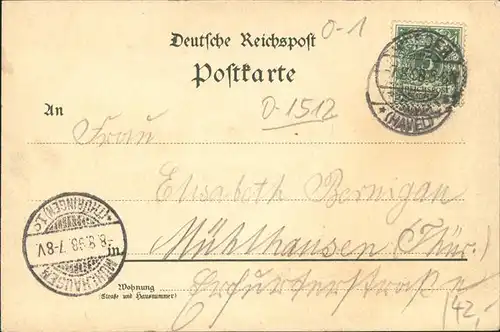 Deutsche Reichspost
0-1
Postkarte
0-1512
An
Frau
Elisabeth Bernigau
in Mühlhausen (Thür.)
Wohnung Erfurterstraße
(Straße und Hausnummer)
42,-
(HAVEL)
MÜHLHAUSEN
8.8.98.7-8V.
(THÜRINGEN)